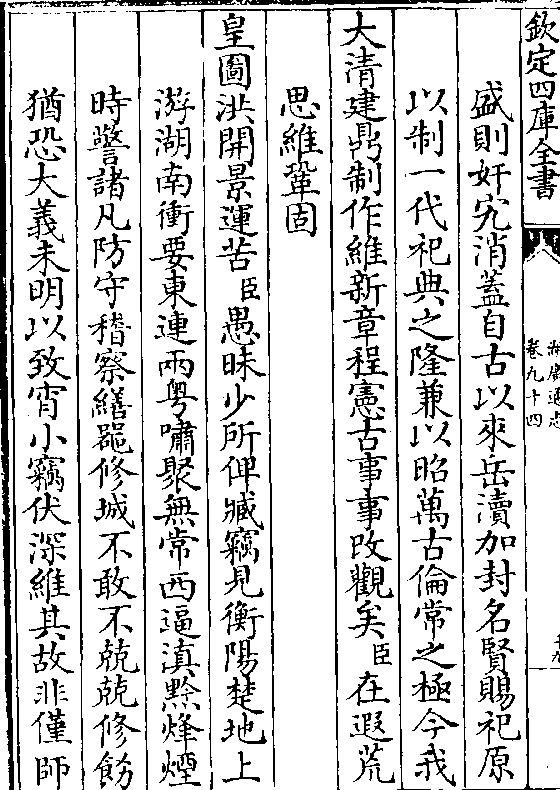 欽定四庫全書
卷九十四
盛則奸宄消蓋自古以來岳瀆加封名賢賜祀原
以制一代祀典之隆兼以昭萬古倫常之極今我
大清建鼎制作維新章程憲古事事改觀矣臣在遐荒
思維鞏固
皇圖洪開景運苦臣愚昧少所俾臧竊見衡陽楚地上
游湖南衝要東連兩粤嘯聚無常西逼滇黔烽煙
時警諸凡防守稽察繕噐修城不敢不兢兢修飭
猶恐大義未明以致宵小竊伏深維其故非僅師